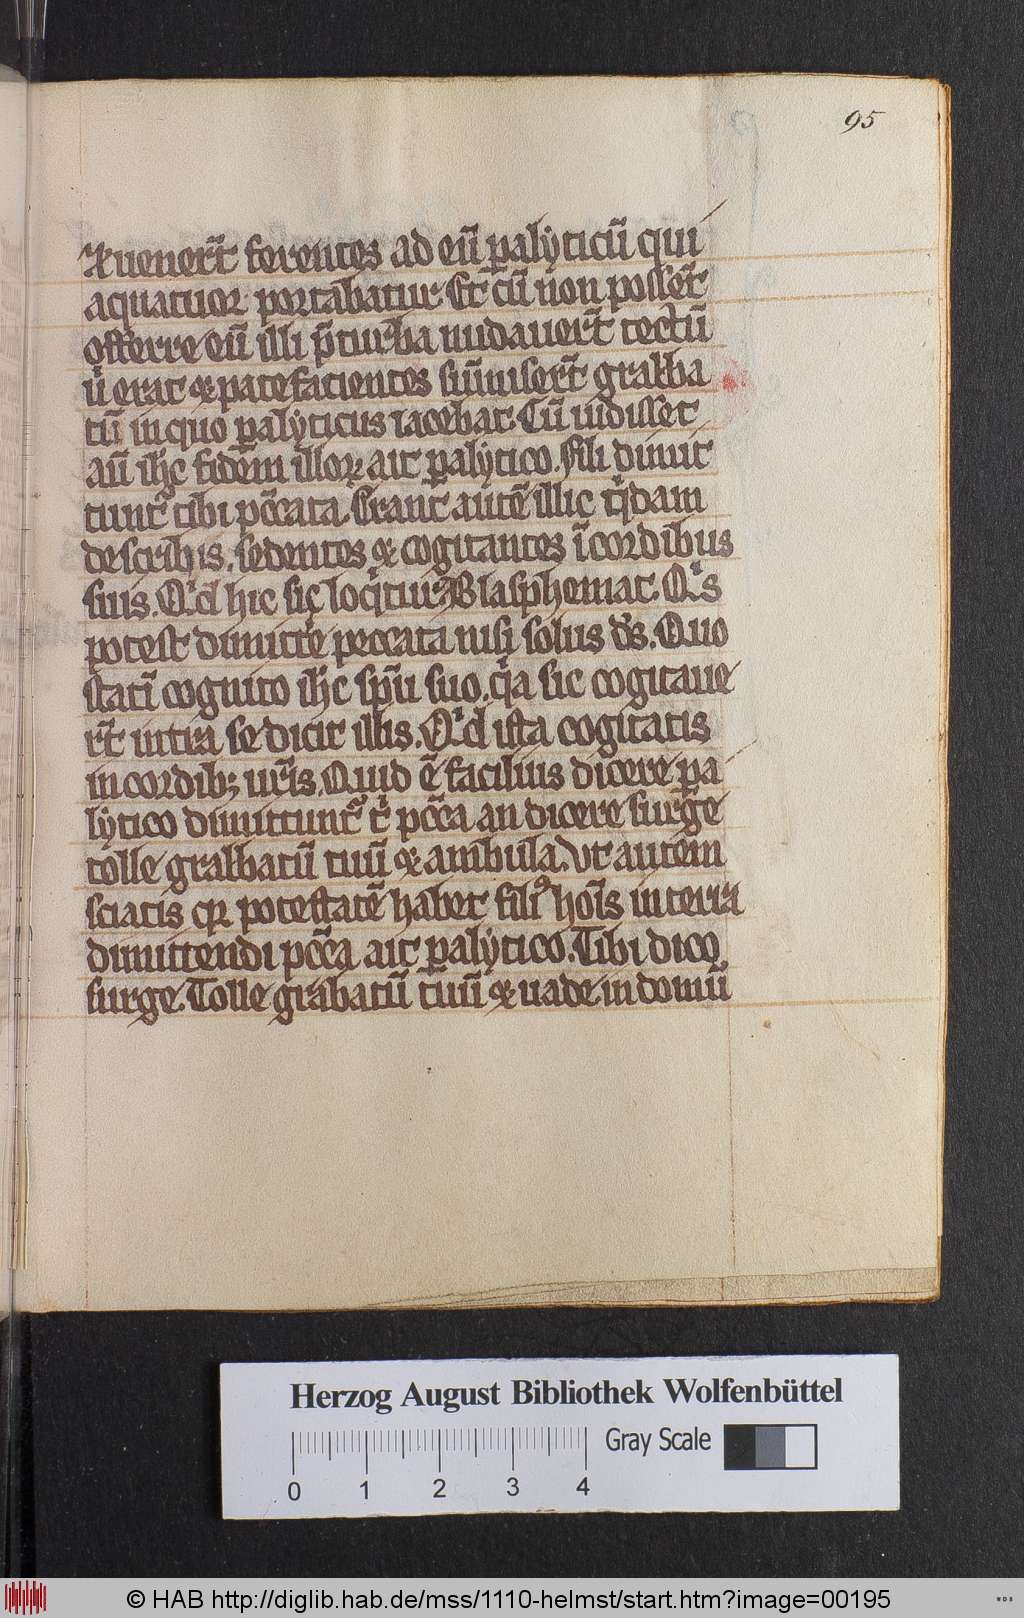 95
⁊ uenerūt ferentes ad eū ꝑalyticū qui
aquatuor portabatur. Et cū non possēt
offerre eū illi p̄ turba nudauerūt tectū
uͥ erat ⁊ patefacientes sūmiserūt grabba
tū in quo ꝑalyticus iacebat. Cū uidisset
aū ih̄c fidem illoꝝ ait ꝑalytico. Fili dimit
tunt᷑ tibi pc̄cata. Erant autē illic qͥdam
de scribis. sedentes ⁊ cogitantes ī cordibus
suis. Qͥd hic sic loqͥtur Blasphemat. Qͥs
potest dimitt̄e peccata nisi solus d̄s. Quo
statī cognito ih̄c sp̄u suo. qͣa sic cogitaue
rūt intra se dicit illis. Qͥd ista cogitatis
in cordib; ur̄is. Quid ē facilius dicere ꝑa
lytico dimittunt᷑ tͥ pc̄ca an dicere surge
tolle grabbatū tuū ⁊ ambula. Ut autem
sciatis qꝛ potestatē habet filiꝰ hoīs in terra
dimittendi pc̄ca ait ꝑalytico. Tibi dico
surge. Tolle grabatū tuū ⁊ uade in domū
Herzog August Bibliothek Wolfenbüttel
Gray Scale
0 1 2 3 4
© HAB http://diglib.hab.de/mss/1110-helmst/start.htm?image=00195